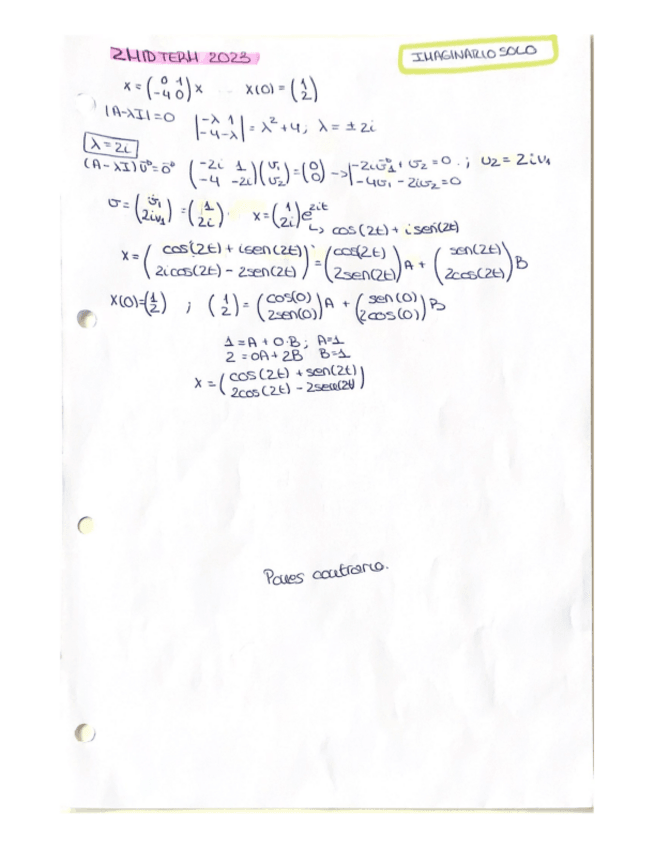 2MIDTERM 2023
IMAGINARIO SOLO
x = (0 1 / -4 0) x x(0) = (1 / 2)
|A-λI|=0 |-λ 1 / -4 -λ| = λ²+4; λ = ± 2i
λ=2i
(A-λI)v⃗=0⃗ (-2i 1 / -4 -2i)(v₁ / v₂)=(0 / 0) -> |-2iv₁ + v₂ = 0. ; v₂ = 2iv₁ / -4v₁ - 2iv₂=0
v = (v₁ / 2iv₁) = (1 / 2i) x = (1 / 2i)e^2it
↳ cos(2t) + i sen(2t)
x = (cos(2t) + isen(2t) / 2icos(2t) - 2sen(2t)) = (cos(2t) / 2sen(2t))A + (sen(2t) / 2cos(2t))B
x(0)=(1 / 2) ; (1 / 2) = (cos(0) / 2sen(0))A + (sen(0) / 2cos(0))B
1 = A + 0·B; A=1
2 = 0A + 2B B=1
x = (cos(2t) + sen(2t) / 2cos(2t) - 2sen(2t))